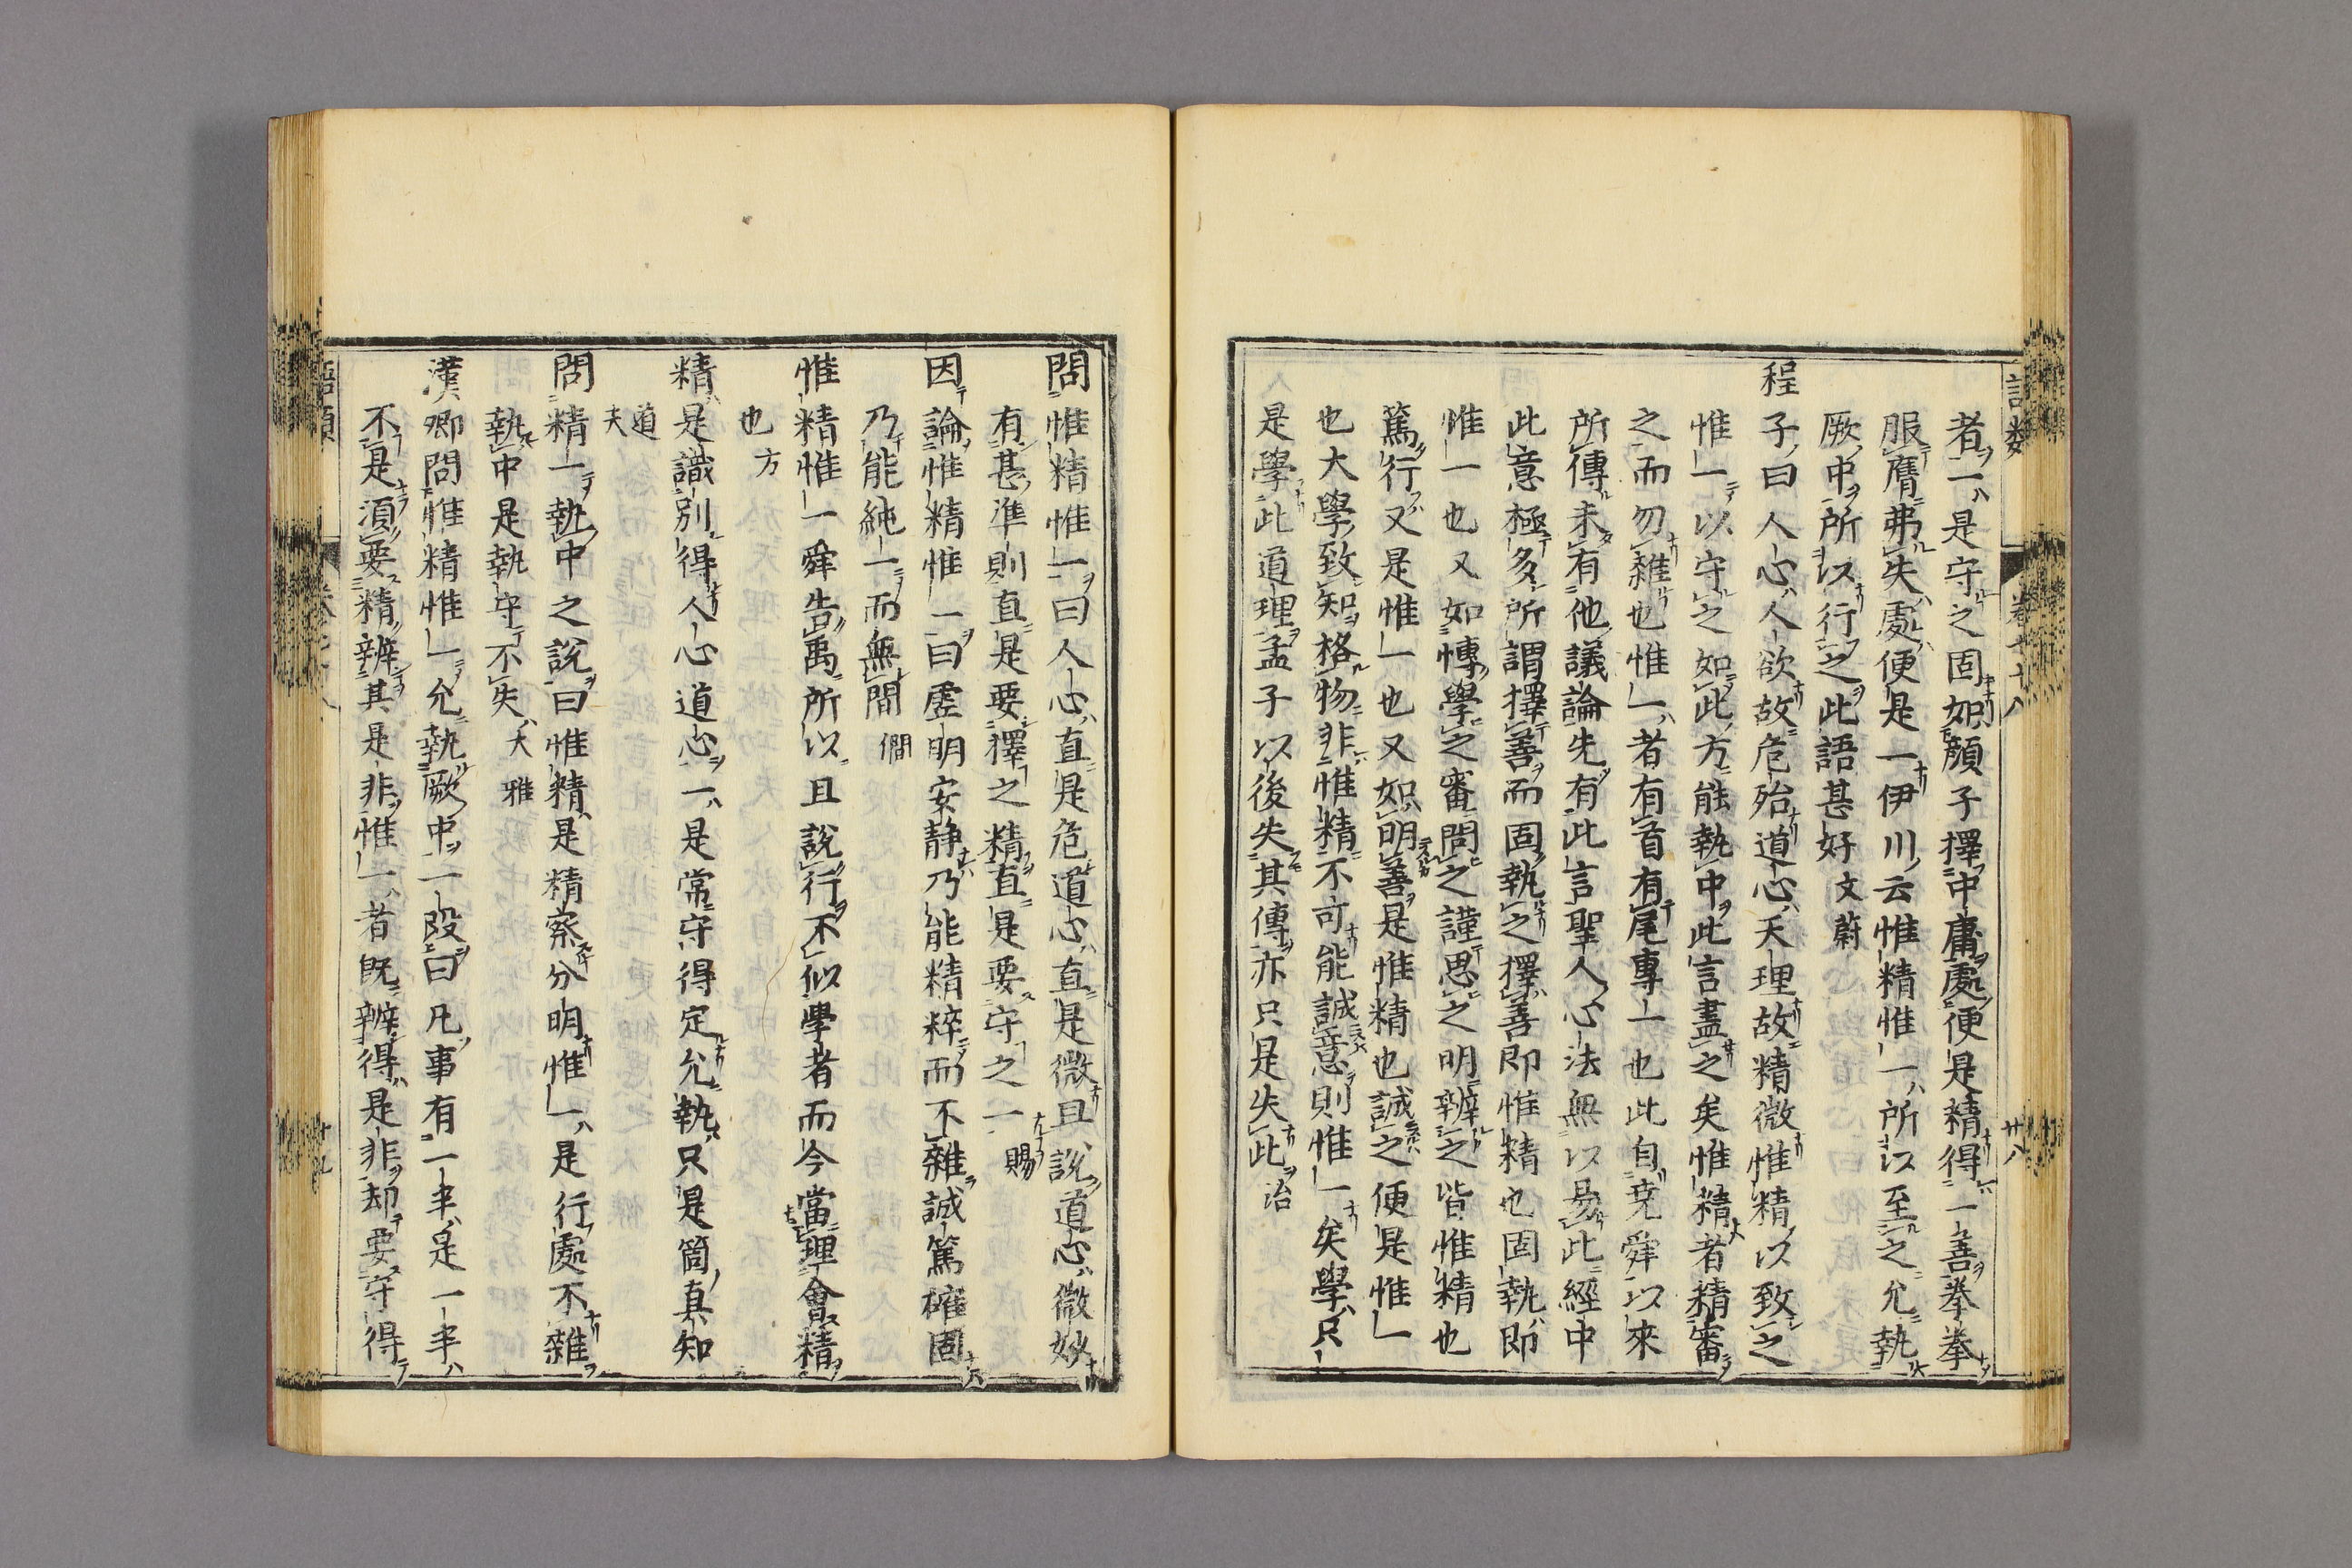 者一是守之固如顏子擇中庸處便是精得一善拳拳
服膺弗失處便是一伊川云惟精惟一所以至之允執
厥中所以行之此語甚好文蔚
程子曰人心人欲故危殆道心天理故精微惟精以致之
惟一以守之如此方能執中此言盡之矣惟精者精審
之而勿雜也惟一者有首有尾專一也此自堯舜以來
所傳未有他議論先有此言聖人心法無以易此經中
此意極多所謂擇善而固執之擇善即惟精也固執即
惟一也又如博學之審問之謹思之明辨之皆惟精也
篤行又是惟一也又如明善是惟精也誠之便是惟一
也大學致知格物非惟精不可能誠意則惟一矣學只
是學此道理孟子以後失其傳亦只是失此治
問惟精惟一曰人心直是危道心直是微且說道心微妙
有甚準則直是要擇之精直是要守之一賜
因論惟精惟一曰虛明安静乃能精粹而不雜誠篤確固
乃能純一而無間僩
惟精惟一舜告禹所以且說行不似學者而今當理會精
也方
精是識別得人心道心一是常守得定允執只是箇真知
道夫
問精一執中之說曰惟精是精察分明惟一是行處不雜
執中是執守不失大雅
漢卿問惟精惟一允執厥中一段曰凡事有一半是一半
不是須要精辨其是非惟一者既辨得是非却要守得